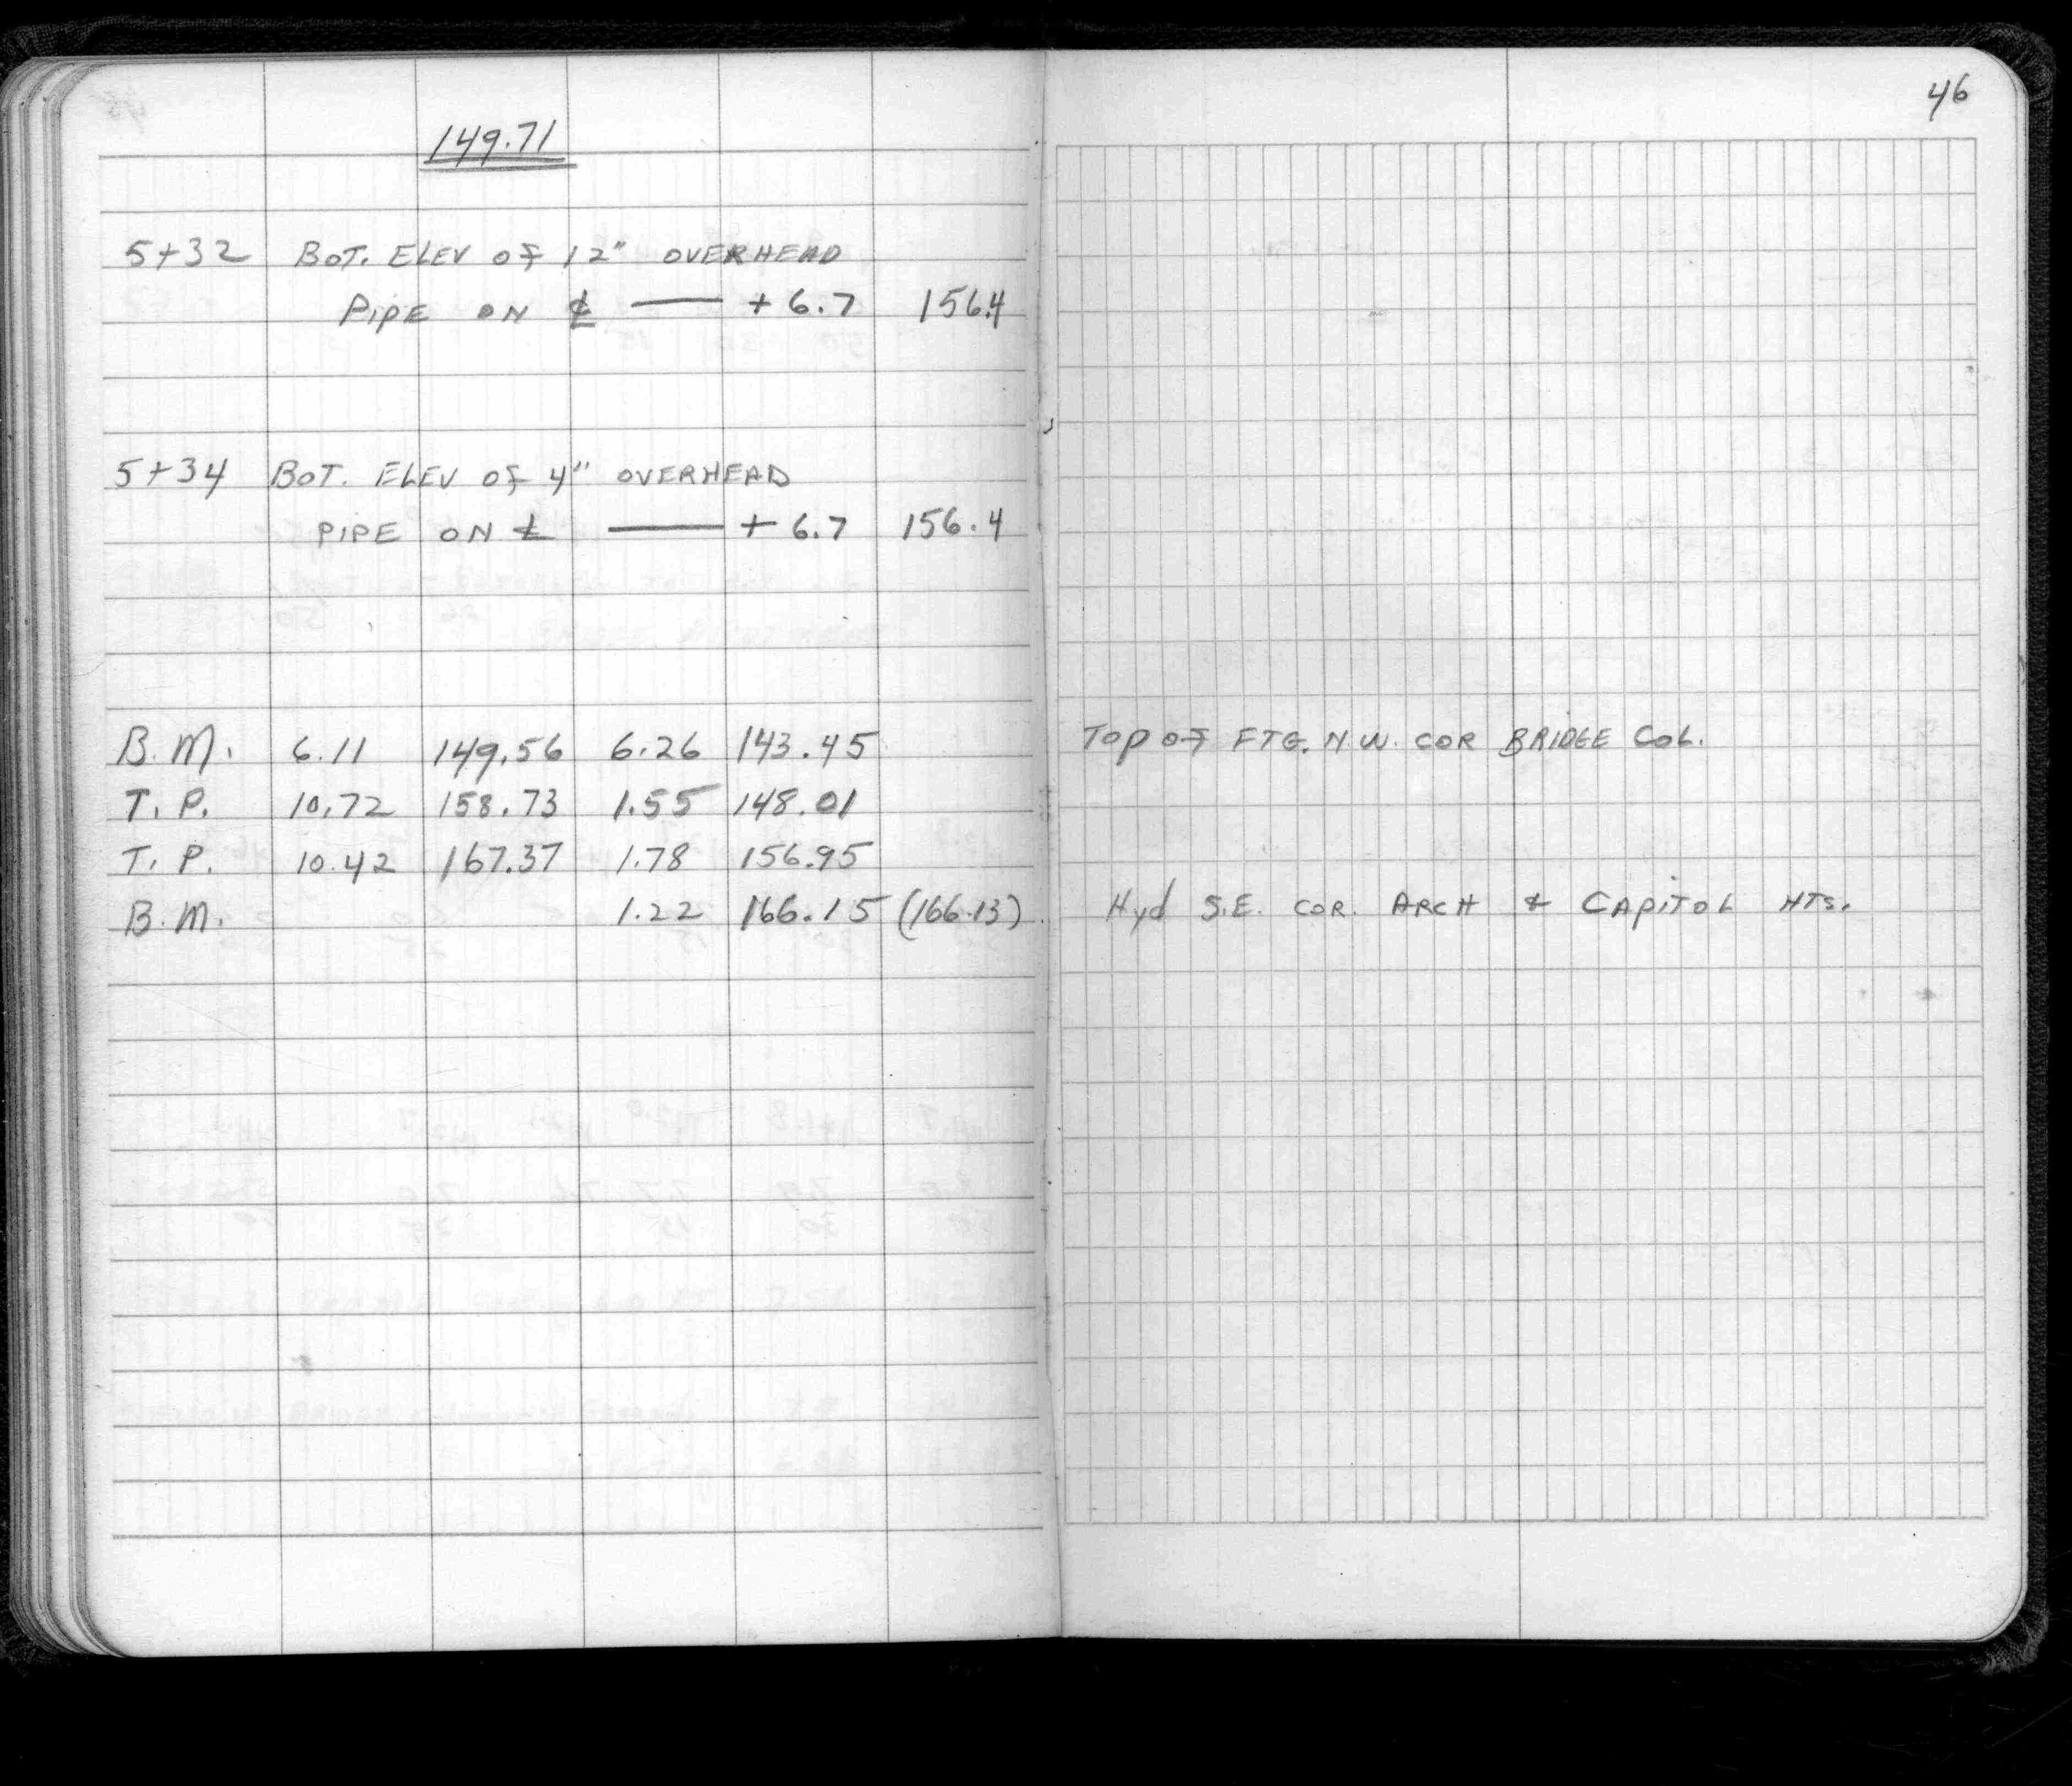 46
149.71
5+32 BOT. ELEV OF 12" OVERHEAD
PIPE ON ℄ — + 6.7 156.4
5+34 BOT. ELEV OF 4" OVERHEAD
PIPE ON ℄ — + 6.7 156.4
B.M. 6.11 149.56 6.26 143.45 TOP OF FTG. N.W. COR BRIDGE COL.
T.P. 10.72 158.73 1.55 148.01
T.P. 10.42 167.37 1.78 156.95
B.M. 1.22 166.15 (166.13) Hyd S.E. COR. ARCH & CAPITOL HTS.